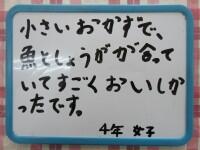 小さいおかずで、
魚としょうがが合って
いてすごくおいしか
ったです。
4年 女子